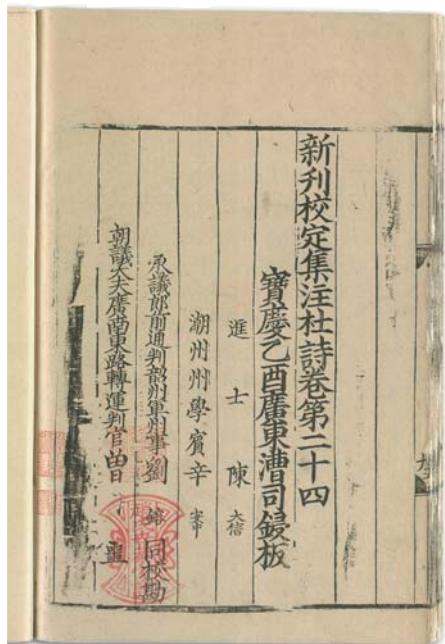 新刊校定集注杜詩卷第二十四
寶慶乙酉廣東漕司鋟板
進士陳大信
潮州州學賓辛
承議郎前通判韶州軍州事劉鎔同校勘
朝議大夫廣南東路轉運判官曾噩